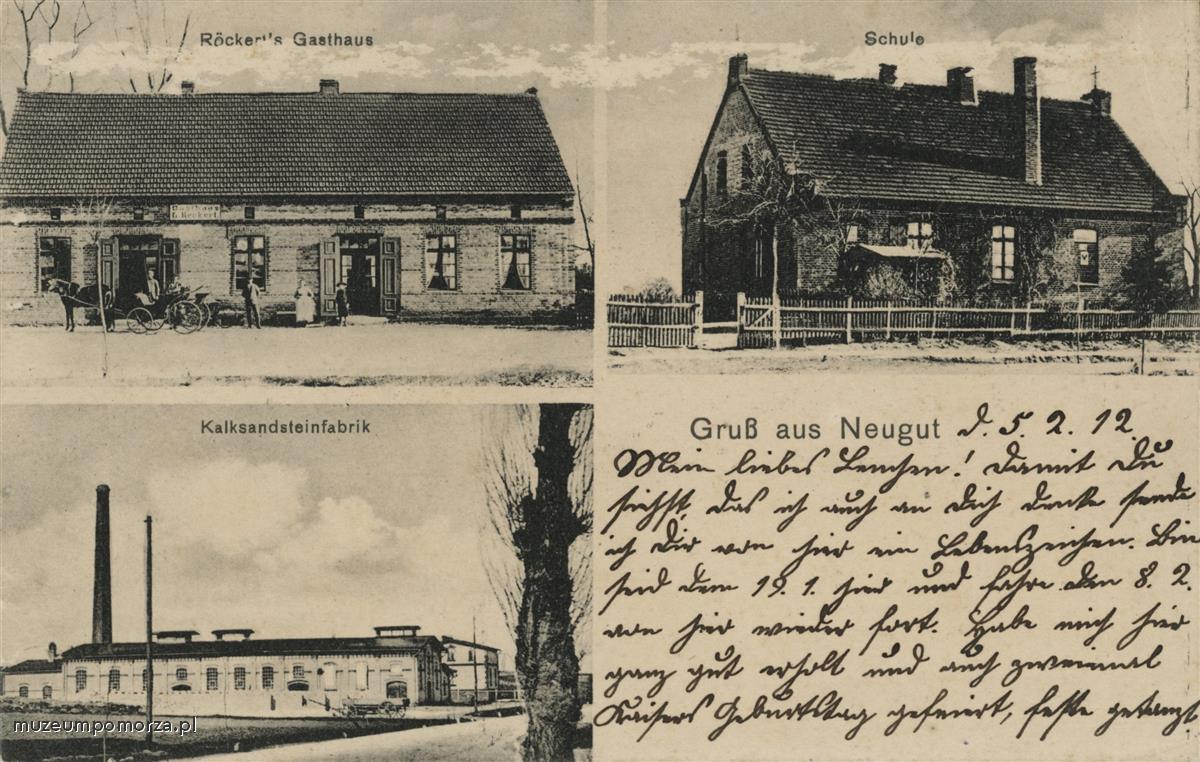 Röckert's Gasthaus
Schule
G. Röckert
Kalksandsteinfabrik
Gruß aus Neugut d. 5. 2. 12.
Mein liebes Lenchen! Damit Du
siehst, das ich auch an Dich denke sende
ich Dir von hier ein Lebenszeichen. Bin
seid dem 19. 1. hier und fahre den 8. 2.
von hier wieder fort. Habe mich hier
ganz gut erholt und auch zweimal
Kaisers Geburtstag gefeiert, feste getanzt
muzeumpomorza.pl